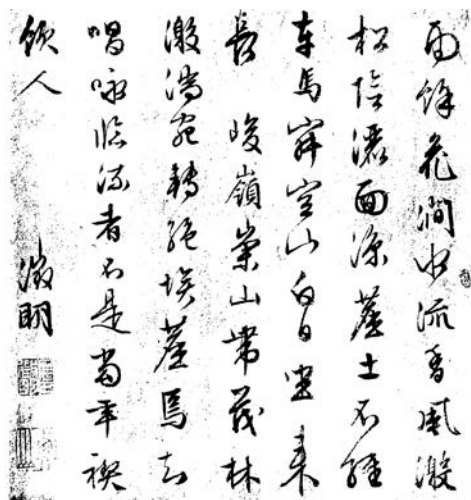 雨餘花澗水流香風激
松陰灑面涼塵土不經
車馬空山白日坐來
長 峻嶺崇山帶茂林
激湍宛轉絕埃塵焉知
唱咏臨流者不是當年禊
飲人 徵明